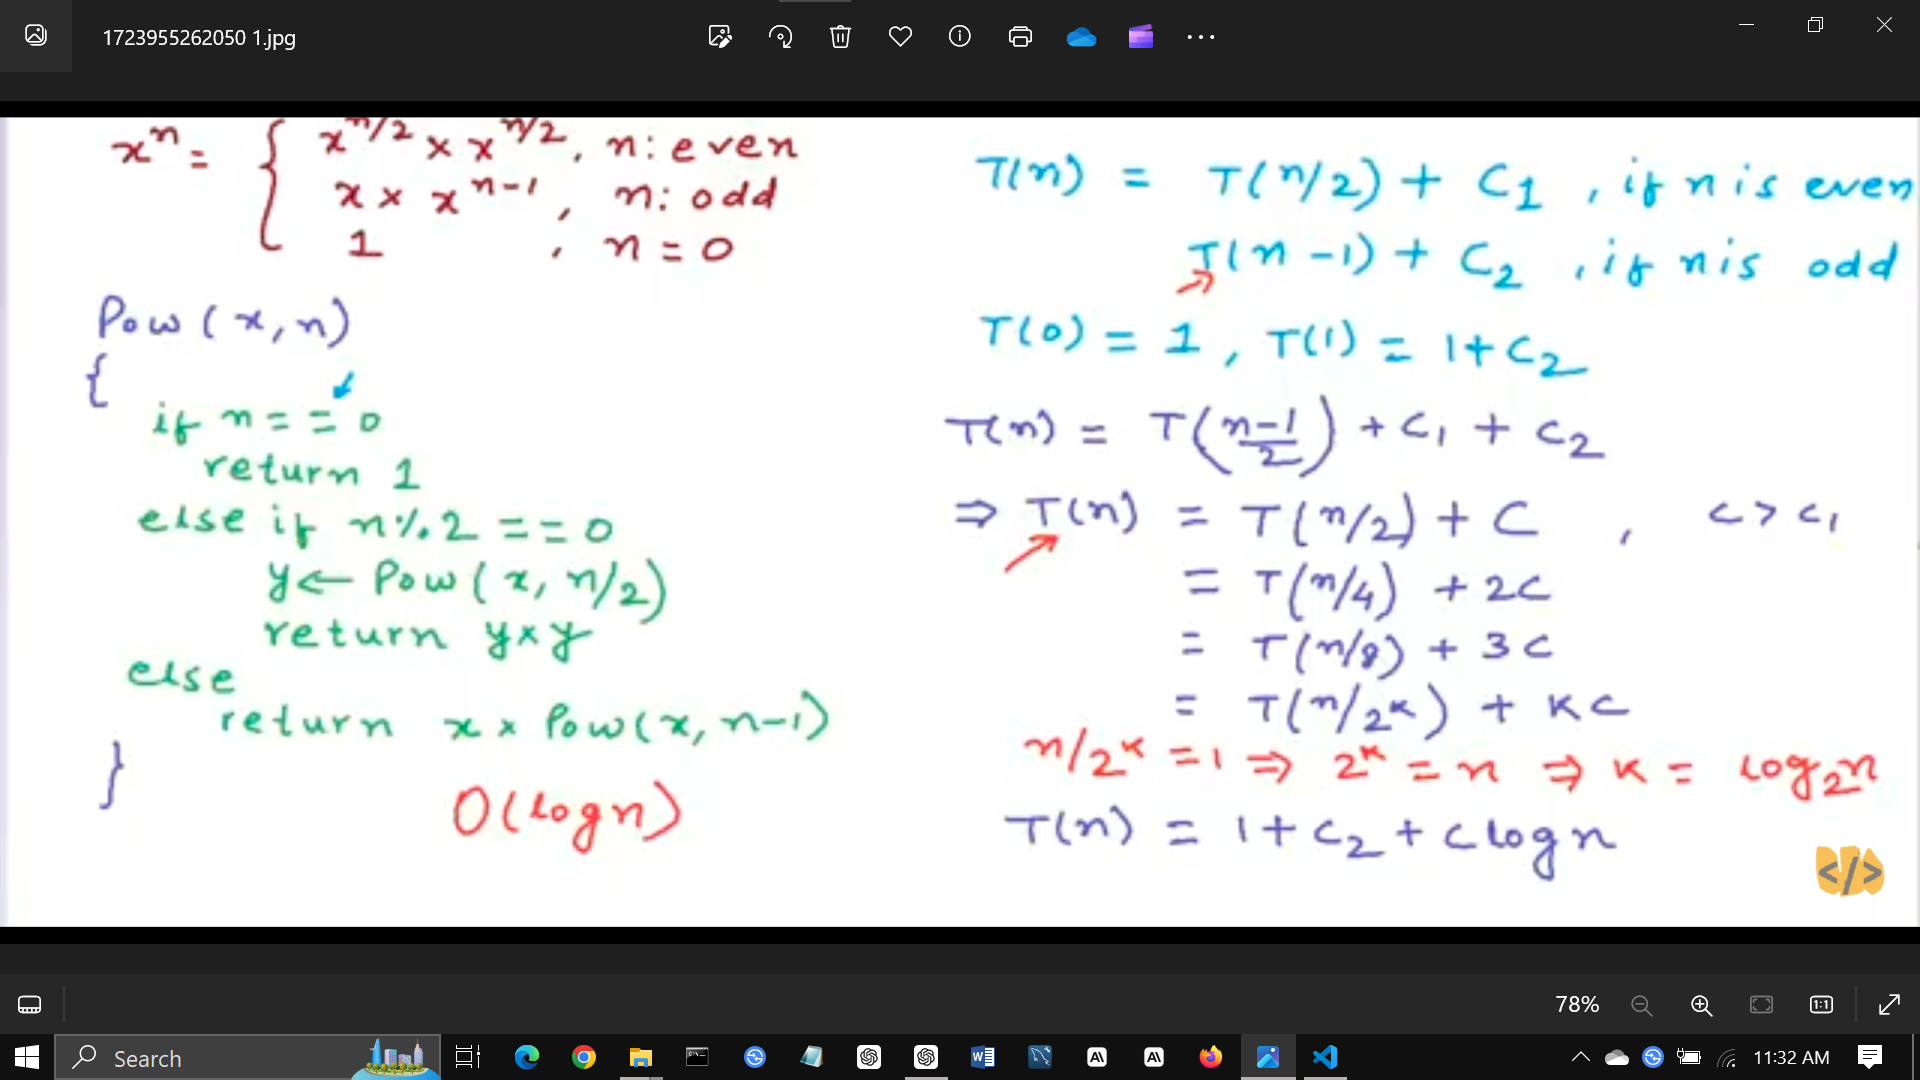 1723955262050 1.jpg
xⁿ = { x^(n/2) × x^(n/2), n: even
x × x^(n-1), n: odd
1 , n = 0
Pow(x, n)
{
if n == 0
return 1
else if n % 2 == 0
y ← Pow(x, n/2)
return y × y
else
return x × Pow(x, n-1)
}
O(log n)
T(n) = T(n/2) + C1 , if n is even
T(n-1) + C2 , if n is odd
T(0) = 1 , T(1) = 1 + C2
T(n) = T((n-1)/2) + C1 + C2
⇒ T(n) = T(n/2) + C , C > C1
= T(n/4) + 2C
= T(n/8) + 3C
= T(n/2^K) + KC
n/2^K = 1 ⇒ 2^K = n ⇒ K = log₂n
T(n) = 1 + C2 + C log n
</>
78%
Search
11:32 AM